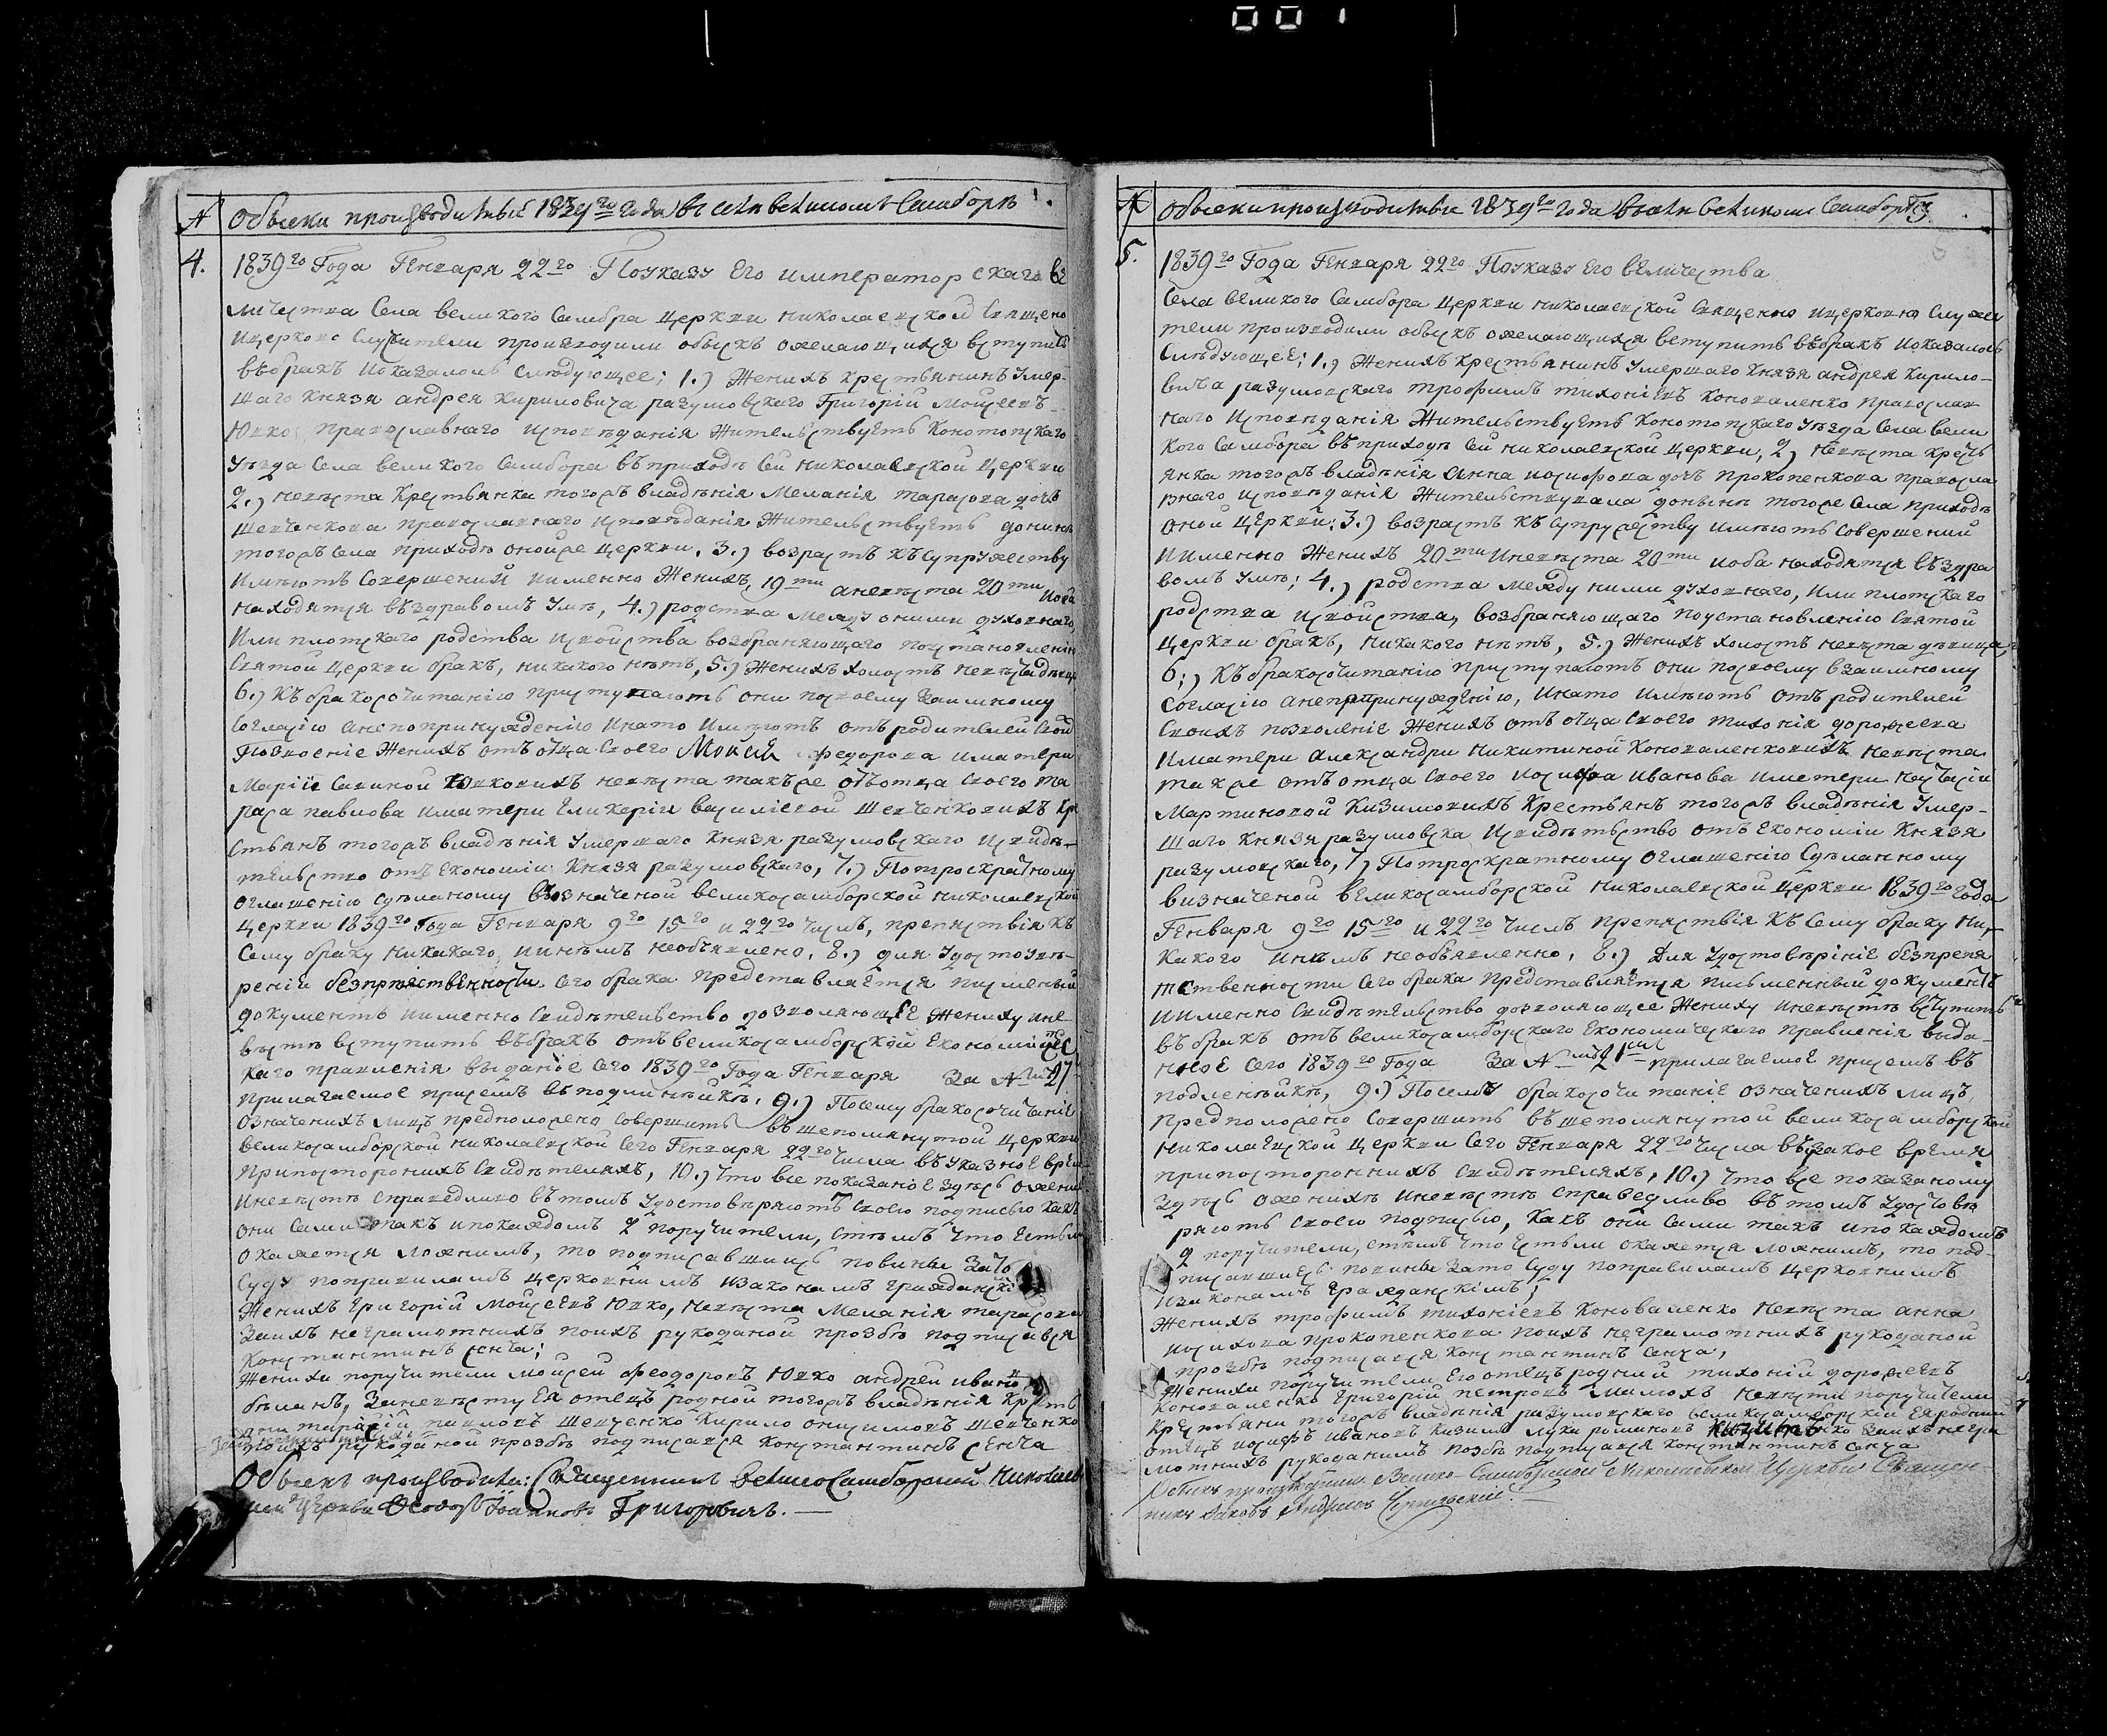 001
№ Обыски производимые 1839го года в селе великомъ Самборе
4. 1839го Года Генваря 22го По указу Его императорскаго ве
личества Села великого Самбора церкви николаевской Священо
и церковно служители производили обыскъ о желающихся вступить
въ бракъ и оказалось следующее; 1.) Женихъ крестьянинъ умер-
шаго князя андрея кириловича разумовскаго Григорій Моисеевъ
Юхко православнаго исповѣданія жительствуетъ конотопскаго
уѣзда Села великого Самбора въ приходѣ сей николаевской церкви
2.) невѣста крестьянка тогожъ владѣнія Меланія тарасова дочь
шевченкова православнаго исповѣданія жительствуетъ донинѣ
тогожъ села приходѣ оной же церкви. 3.) возрастъ къ супружеству
имѣютъ совершений и именно Женихъ, 19ти а невѣста 20ти и оба
находятся въ здравомъ умѣ, 4.) родства между оними духовнаго
или плотскаго родства и свойства возбраняющаго по установленію
Святой церкви бракъ, никакого нѣтъ, 5.) Женихъ холостъ невѣста девица
6.) Къ бракосочитанію приступаютъ они по своему взаимному
согласію а не по принуждению и на то имѣютъ отъ родителей свои
позволеніе Женихъ отъ отца своего Мойсея федорова и матери
Маріи Савиной Юхковихъ невѣста такъ же отъ отца своего та
раса павлова и матери Гликеріи василіевой Шевченковихъ кре
стьянъ тогожъ владѣнія умершаго князя разумовскаго и свидѣ-
тельство отъ Економіи князя разумовскаго, 7.) По троекратному
оглашенію сделаному въ означеной великосамборской николаевской
церкви 1839го Года Генваря 9го 15го и 22го числъ, препятствія къ
сему браку никакаго, никѣмъ не объявлено, 8.) для удостоувѣ-
реніи безпрепятственности сего брака представляется писменный
документъ и именно свидѣтельство дозволяющее жениху и не-
вѣстѣ вступить въ бракъ отъ великосамборской економичес
каго правления виданое сего 1839го Года Генваря За №
прилагаемое при семъ въ подлиннике, 9.) По сему бракосочитаніе
означенихъ лицъ предположено совершить въ шепомянутой церкви
великосамборской николаевской сего Генваря 22го числа въ указное время
при посторонихъ свидѣтеляхъ, 10.) Что все показаное здѣсь о женихе
и невѣстѣ справедливо въ томъ удостоверяютъ своею подписью какъ
они сами такъ и по каждомъ 2 поручители, стѣмъ что естьли
окажется ложнимъ, то подписавшиясь повинны за то
суду по правиламъ церковнимъ и законамъ граяданскі
Женихъ Григорій Мойсеевъ Юхко, невѣста Меланія тарасова
за ихъ неграмотнихъ по ихъ рукоданой прозбѣ подписався
константинъ сенча;
Женихи поручители мойсей феодоровъ Юхко андрей ивано
бѣланъ, за невѣсту Ея отецъ родной тогожъ владѣнія крест
павловъ шевченко кирило онисимовъ шевченко
по ихъ рукоданой прозбѣ подписался константинъ Сенча
Обыскъ производили: Священникъ великосамборской Николаев
ской церкви Феодосій Іоанновъ Григоровичъ.
№ Обыски производимые 1839го года в селе великомъ Самборе
5. 1839го Года Генваря 22го По указу Его величества
Села великого Самбора церкви николаевской Священно и церковно служи
тели производили обыскъ о желающихся вступить въ бракъ и оказалось
слѣдующее; 1.) Женихъ крестьянинъ умершаго князя андрея кирило-
вича разумовскаго трофимъ тихоніевъ коноваленко православ
наго исповѣданія жительствуетъ конотопскаго уѣзда села вели
кого Самбора въ приходѣ сей николаевской церкви, 2.) невѣста кресть
янка тогожъ владѣнія анна иосифова дочь прокопенкова правосла
внаго исповѣданія жительствувала донынѣ тогоже села приходѣ
оной церкви. 3.) возрастъ къ супружеству имѣютъ совершений
и именно Женихъ 20ти и невѣста 20ти и оба находятся въ здра
вомъ умѣ; 4.) родства между ними духовнаго, или плотскаго
родства и свойства, возбраняющаго по установленію святой
церкви бракъ, никакого нѣтъ, 5.) Женихъ холостъ невѣста дѣвица
6;) Къ бракосочитанію приступаютъ они по своему взаимному
согласію а не принуждению, и на то имѣютъ отъ родителей
своихъ позволеніе Женихъ отъ отца своего тихонія дорофеева
и матери александри никитиной коноваленковихъ невѣста
также отъ отца своего иосифа иванова и метери настасіи
Мартиновой кизимовихъ крестьянъ тогожъ владѣнія умер-
шаго князя разумовска и свидѣтельство отъ економіи князя
разумовскаго, 7.) По троекратному оглашенію сдѣланному
в изначеной великосамборской николаевской церкви 1839го года
Генваря 9го 15го и 22го числъ препятствія къ сему браку ни-
какого никѣмъ не объявленно, 8.) Для удостовѣріние безпрепя
тственности сего брака представляется письменный документъ
и именно свидѣтельство дозволяющее Жениху и невѣстѣ вступить
въ бракъ отъ великосамборскаго економическаго правленія выда-
нное сего 1839го Года За № прилагаемое при семъ въ
подленникѣ, 9.) По семѣ бракосочитаніе означенихъ лицъ,
предположено совершить въ шепомянутой великосамборской
николаевской церкви сего Генваря 22го числа въ такое время
при посторонихъ свидѣтеляхъ, 10.) Что все показаному
здѣсь о женихѣ и невѣстѣ справедливо въ томъ удостовѣ
ряютъ своею подписью, какъ они сами такъ и по каждомъ
2 поручители, стѣмъ что естьли окажется ложнимъ, то под-
писавшиесь повинны за то суду по правиламъ церковнимъ
и законамъ граяданскімъ;
Женихъ трофимъ тихоніевъ коноваленко невѣста анна
иосифова прокопенкова по ихъ неграмотнихъ рукоданой
прозбѣ подписался константинъ сенча,
Женихи поручители Его отецъ родний тихоній дорофеевъ
коноваленко григорій петровъ невѣсти поручители
крестьяни тогожъ владѣнія разумовскаго великосамборскіи Ея родний
отецъ иосифъ ивановъ кизимъ лука романовъ за ихъ негра
мотнихъ рукоданимъ позбѣ подписался константинъ сенча
Обыскъ производили Велико-Самборской Николаевской Церкви Священ-
никъ Іаковъ Андреевъ